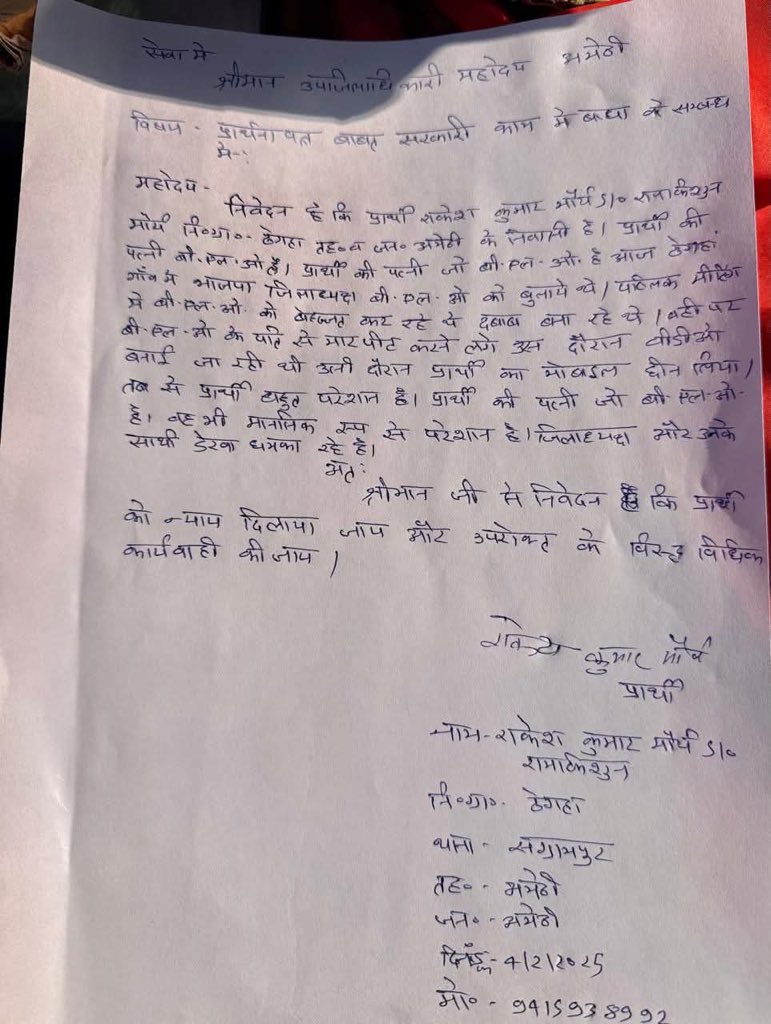 सेवा मे
श्रीमान उपजिलाधिकारी महोदय अमेठी
विषय - प्रार्थना पत्र बाबत सरकारी काम मे बाधा के सम्बंध
मे-:
महोदय -
निवेदन है कि प्रार्थी राकेश कुमार मौर्य S/o रामकिशुन
मौर्य नि०ग्रा०- ठेगहा तह० व जन० अमेठी के निवासी है। प्रार्थी की
पत्नी बी.एल.ओ है। प्रार्थी की पत्नी जो बी.एल.ओ. है आज ठेगहा
गाँव मे भाजपा जिलाध्यक्ष बी.एल.ओ को बुलाये थे। पब्लिक मीटिंग
मे बी.एल.ओ. को बेइज्जत कर रहे थे दबाब बना रहे थे। वही पर
बी.एल.ओ के पति से मारपीट करने लगे उस दौरान वीडीओ
बनाई जा रही थी उसी दौरान प्रार्थी का मोबाइल छीन लिया।
तब से प्रार्थी बहुत परेशान है। प्रार्थी की पत्नी जो बी.एल.ओ.
है। वह भी मानसिक रूप से परेशान है। जिलाध्यक्ष और उनके
साथी डेरवा धमका रहे है।
अतः
श्रीमान जी से निवेदन है कि प्रार्थी
को न्याय दिलाया जाय और उपरोक्त के विरूद्ध विधिक
कार्यवाही की जाय।
राकेश कुमार मौर्य
प्रार्थी
नाम-राकेश कुमार मौर्य S/o
रामकिशुन
नि०ग्रा०- ठेगहा
थाना - संग्रामपुर
तह० - अमेठी
जन० - अमेठी
दिनाँक - 4/2/2025
मो० - 9415938992